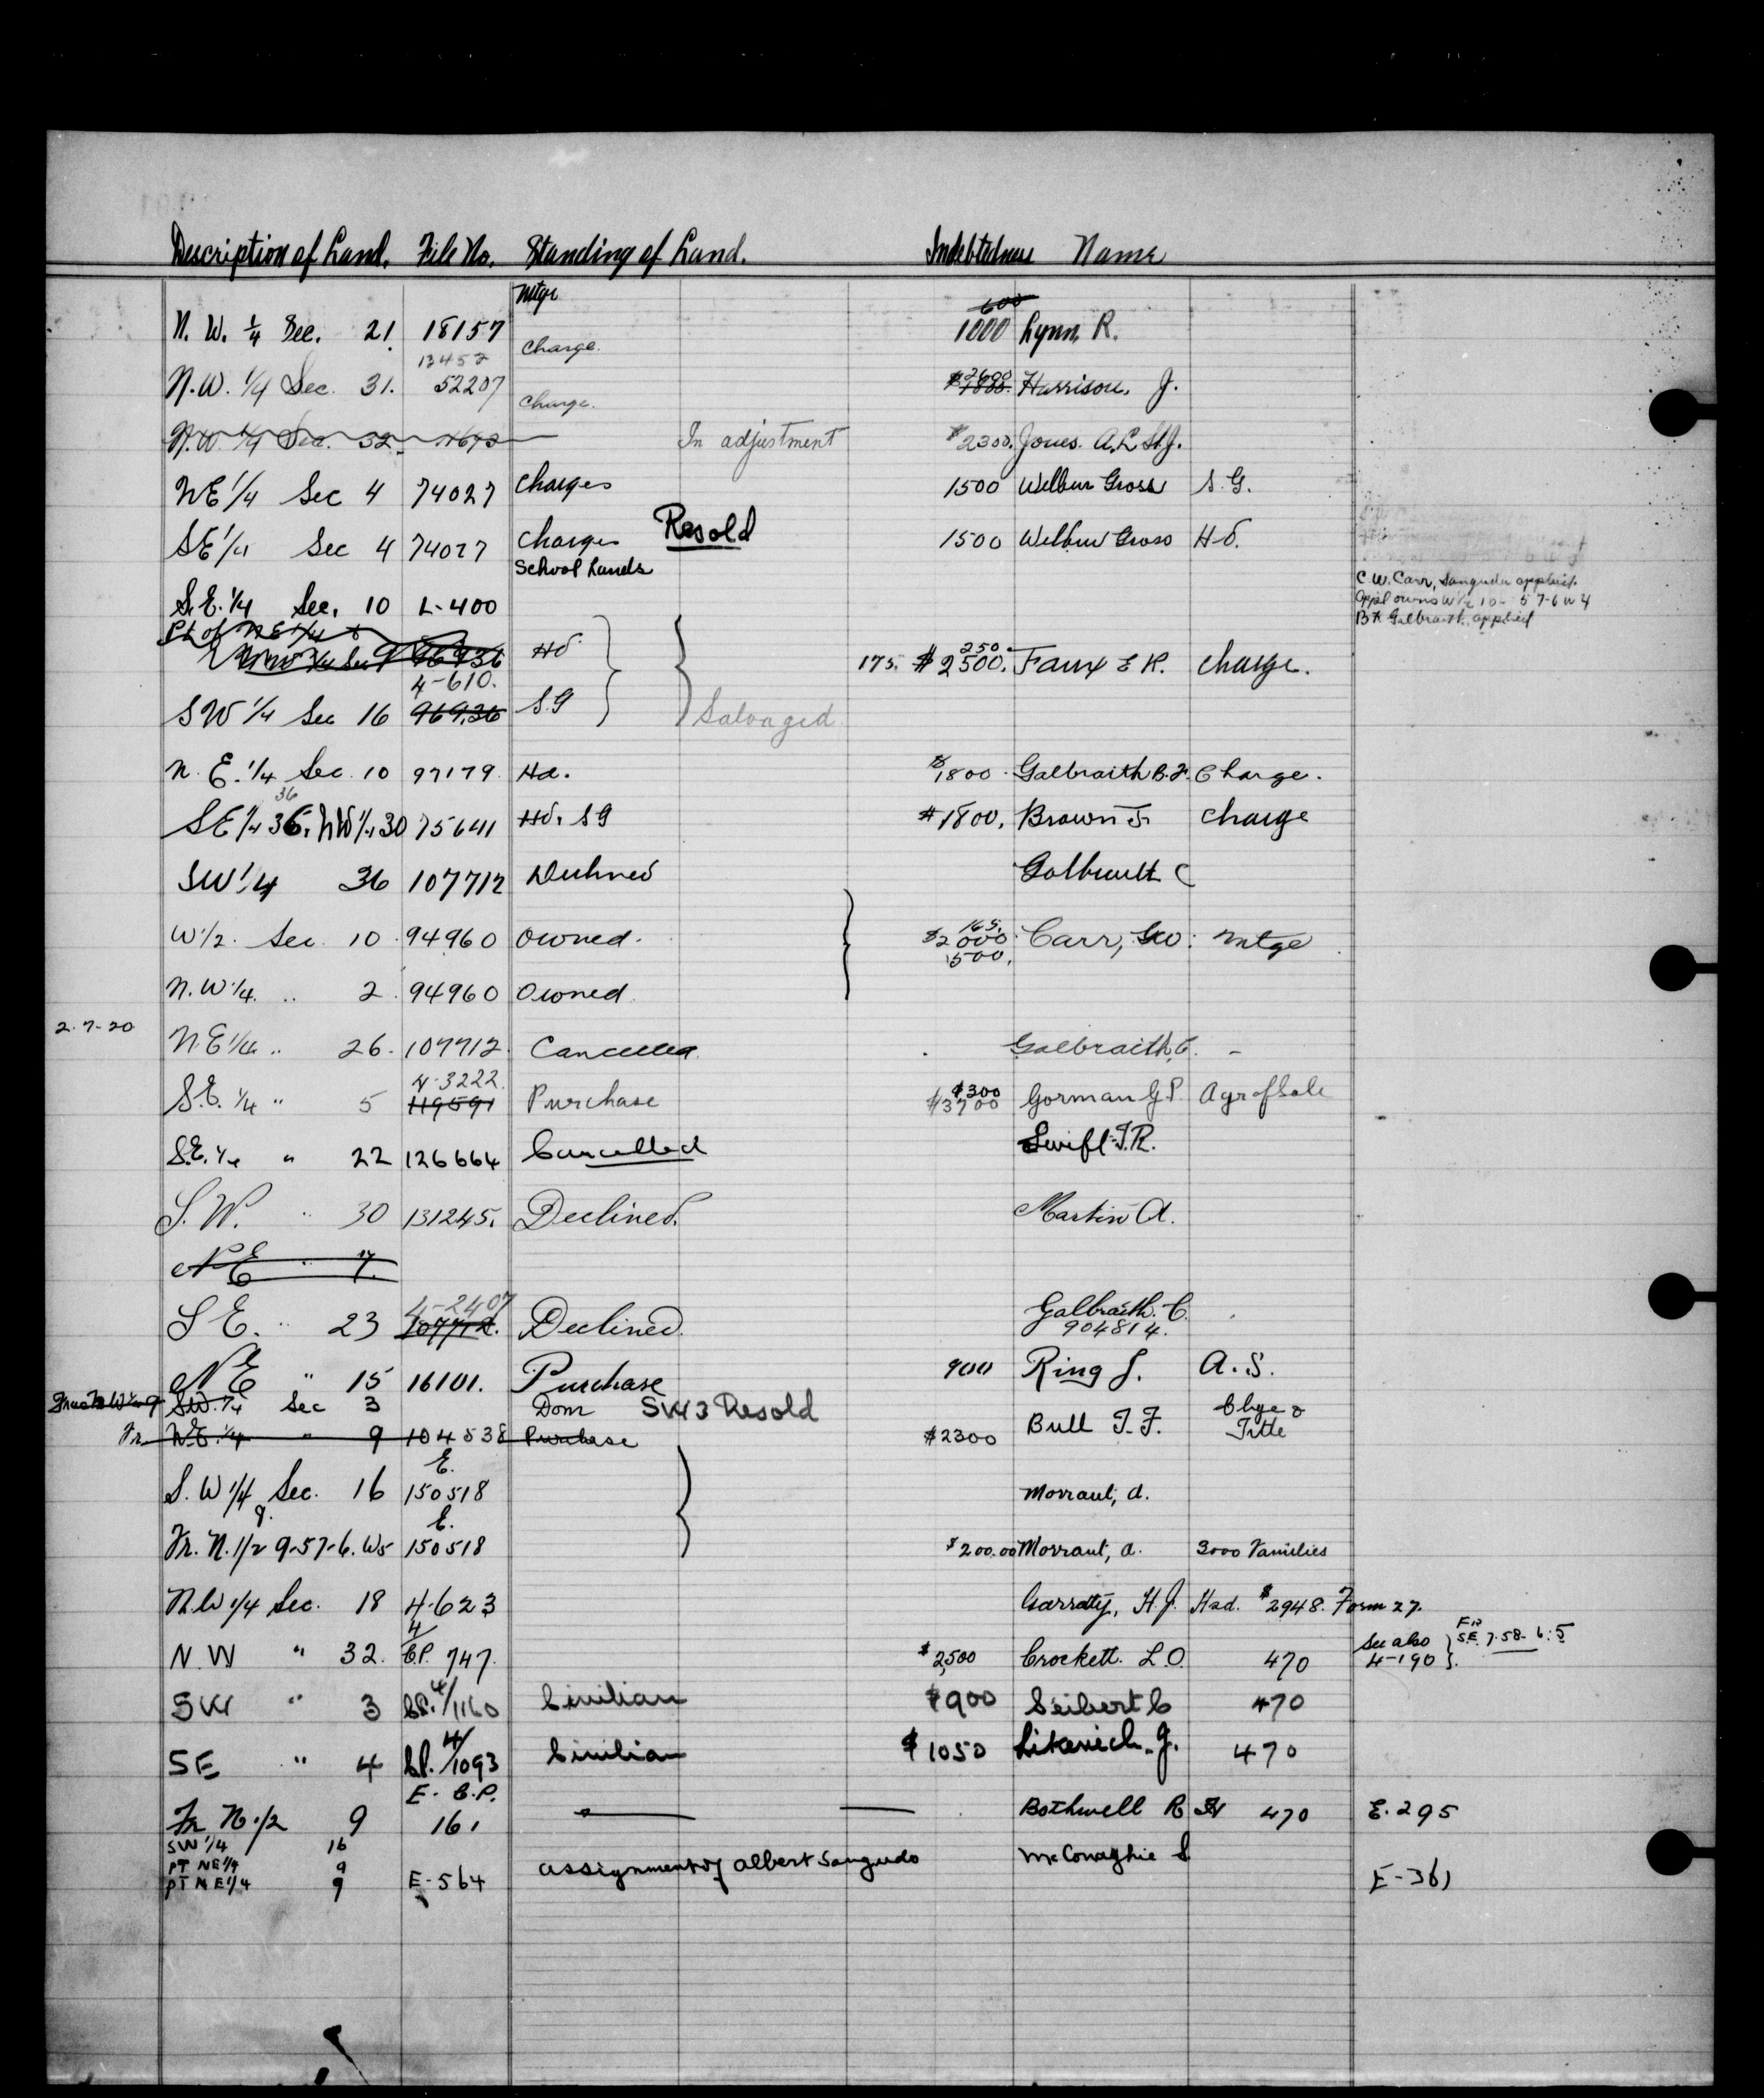 Description of Land. File No. Standing of Land. Indebtedness Name
Mtge
600
N. W. 1/4 Sec. 21. 18157 Charge. 1000 Lynn, R.
13452
N.W. 1/4 Sec. 31. 52207 Charge. $2600 Harrison, J.
N.W. 1/4 Sec. 32. In adjustment $2300. Jones. A.L. St.J.
NE 1/4 Sec 4 74027 Charges 1500 Wilbur Gross S.G.
SE 1/4 Sec 4 74027 Charges Resold 1500 Wilbur Gross Hd.
School Lands
C.W. Carr, Sangudo applied.
S.E. 1/4 Sec. 10 L-400
Appl owns W 1/2 10-57-6 W4
B.F. Galbraith applied
Pt of NE 1/4
Sec 9 96936 Hd 175. $2500. 250. Faux E R. Charge.
4-610.
SW 1/4 Sec 16 96936 S.G Salvaged
N. E. 1/4 Sec. 10 97179 Hd. $1800. Galbraith B.F. Charge.
36
SE 1/4 36, NW 1/4 30 75641 Hd. SG $1800. Brown J. Charge
SW 1/4 36 107712 Declined Galbraith C
165.
W 1/2. Sec. 10. 94960 Owned. $2000. Carr, Geo. Mtge
500.
N.W 1/4. " 2. 94960 Owned.
2.7-20 N.E 1/4 " 26. 107712. Cancelled Galbraith, C. -
4-3222. $300
S.E. 1/4 " 5 119591 Purchase $3700 Gorman G.P. Agr of Sale
S.E. 1/4 " 22 126664 Cancelled Swift T.R.
S.W. " 30 131245. Declined. Martin A.
NE " 17.
4-2407
S E. " 23 107712. Declined. Galbraith. C.
904814.
NE " 15 16101. Purchase 900 Ring J. A.S.
SW. 1/4 Sec 3 Dom SW 3 Resold Chge &
Fr. N.E. 1/4 " 9 104538 Purchase $2300 Bull T.F. Title
E.
S. W 1/4 Sec. 16 150518 Morrant, A.
E.
Fr. N. 1/2 9-57-6. W5 150518 $200.00 Morrant, A. 3000 Families
N.W 1/4 Sec. 18 4-623 Garratty, H.J. Had. $2948. Form 27.
4/
N. W " 32. C.P. 747. $2,500 Crockett. L.O. 470 See also 4-190 Fr. S.E. 7-58-6:5
SW " 3 C.P. 4/1160 Civilian $900 Seibert C 470
SE " 4 C.P. 4/1093 Civilian $1050 Likevich. J. 470
E. C.P.
Fr N. 1/2 9 161 Bothwell R 470 E. 295
SW 1/4 16
PT NE 1/4 9 Assignment of Albert Sangudo McConaghie S
PT NE 1/4 9 E-564 E-361